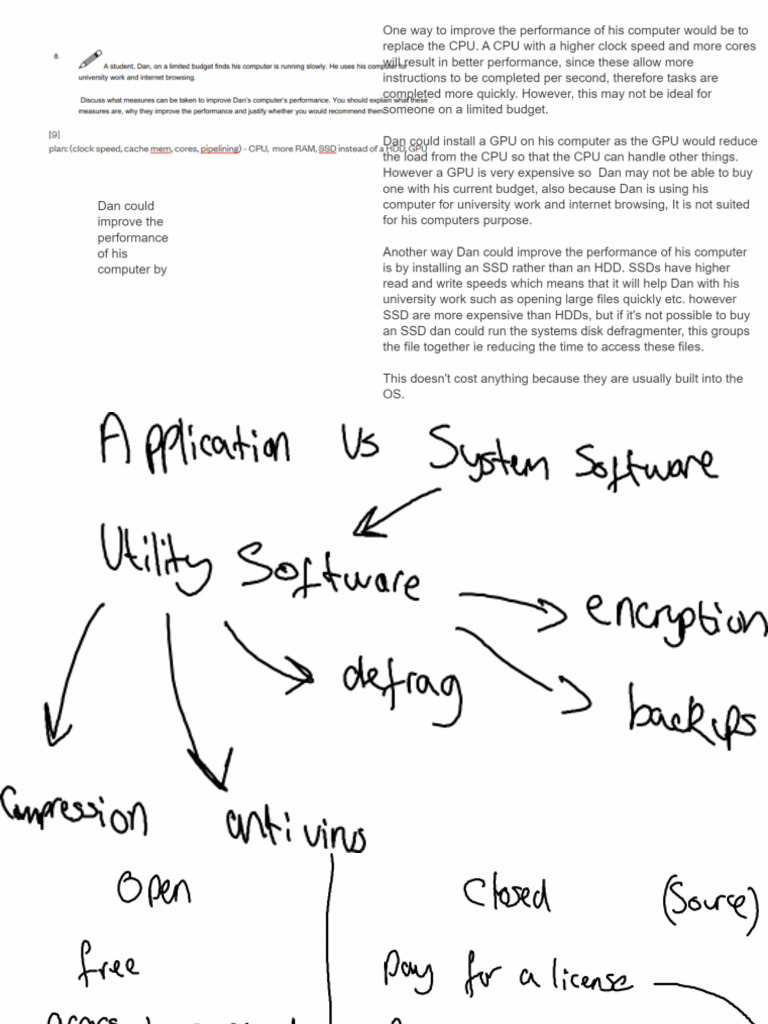 8.
A student, Dan, on a limited budget finds his computer is running slowly. He uses his computer for
university work and internet browsing.
Discuss what measures can be taken to improve Dan's computer's performance. You should explain what these
measures are, why they improve the performance and justify whether you would recommend them
[9]
plan: (clock speed, cache mem, cores, pipelining) - CPU, more RAM, SSD instead of a HDD, GPU
Dan could
improve the
performance
of his
computer by
One way to improve the performance of his computer would be to
replace the CPU. A CPU with a higher clock speed and more cores
will result in better performance, since these allow more
instructions to be completed per second, therefore tasks are
completed more quickly. However, this may not be ideal for
someone on a limited budget.
Dan could install a GPU on his computer as the GPU would reduce
the load from the CPU so that the CPU can handle other things.
However a GPU is very expensive so Dan may not be able to buy
one with his current budget, also because Dan is using his
computer for university work and internet browsing, It is not suited
for his computers purpose.
Another way Dan could improve the performance of his computer
is by installing an SSD rather than an HDD. SSDs have higher
read and write speeds which means that it will help Dan with his
university work such as opening large files quickly etc. however
SSD are more expensive than HDDs, but if it's not possible to buy
an SSD dan could run the systems disk defragmenter, this groups
the file together ie reducing the time to access these files.
This doesn't cost anything because they are usually built into the
OS.
Application Vs System Software
Utility Software
encryption
defrag
backups
Compression
antivirus
Open
Closed
(Source)
free
Pay for a license